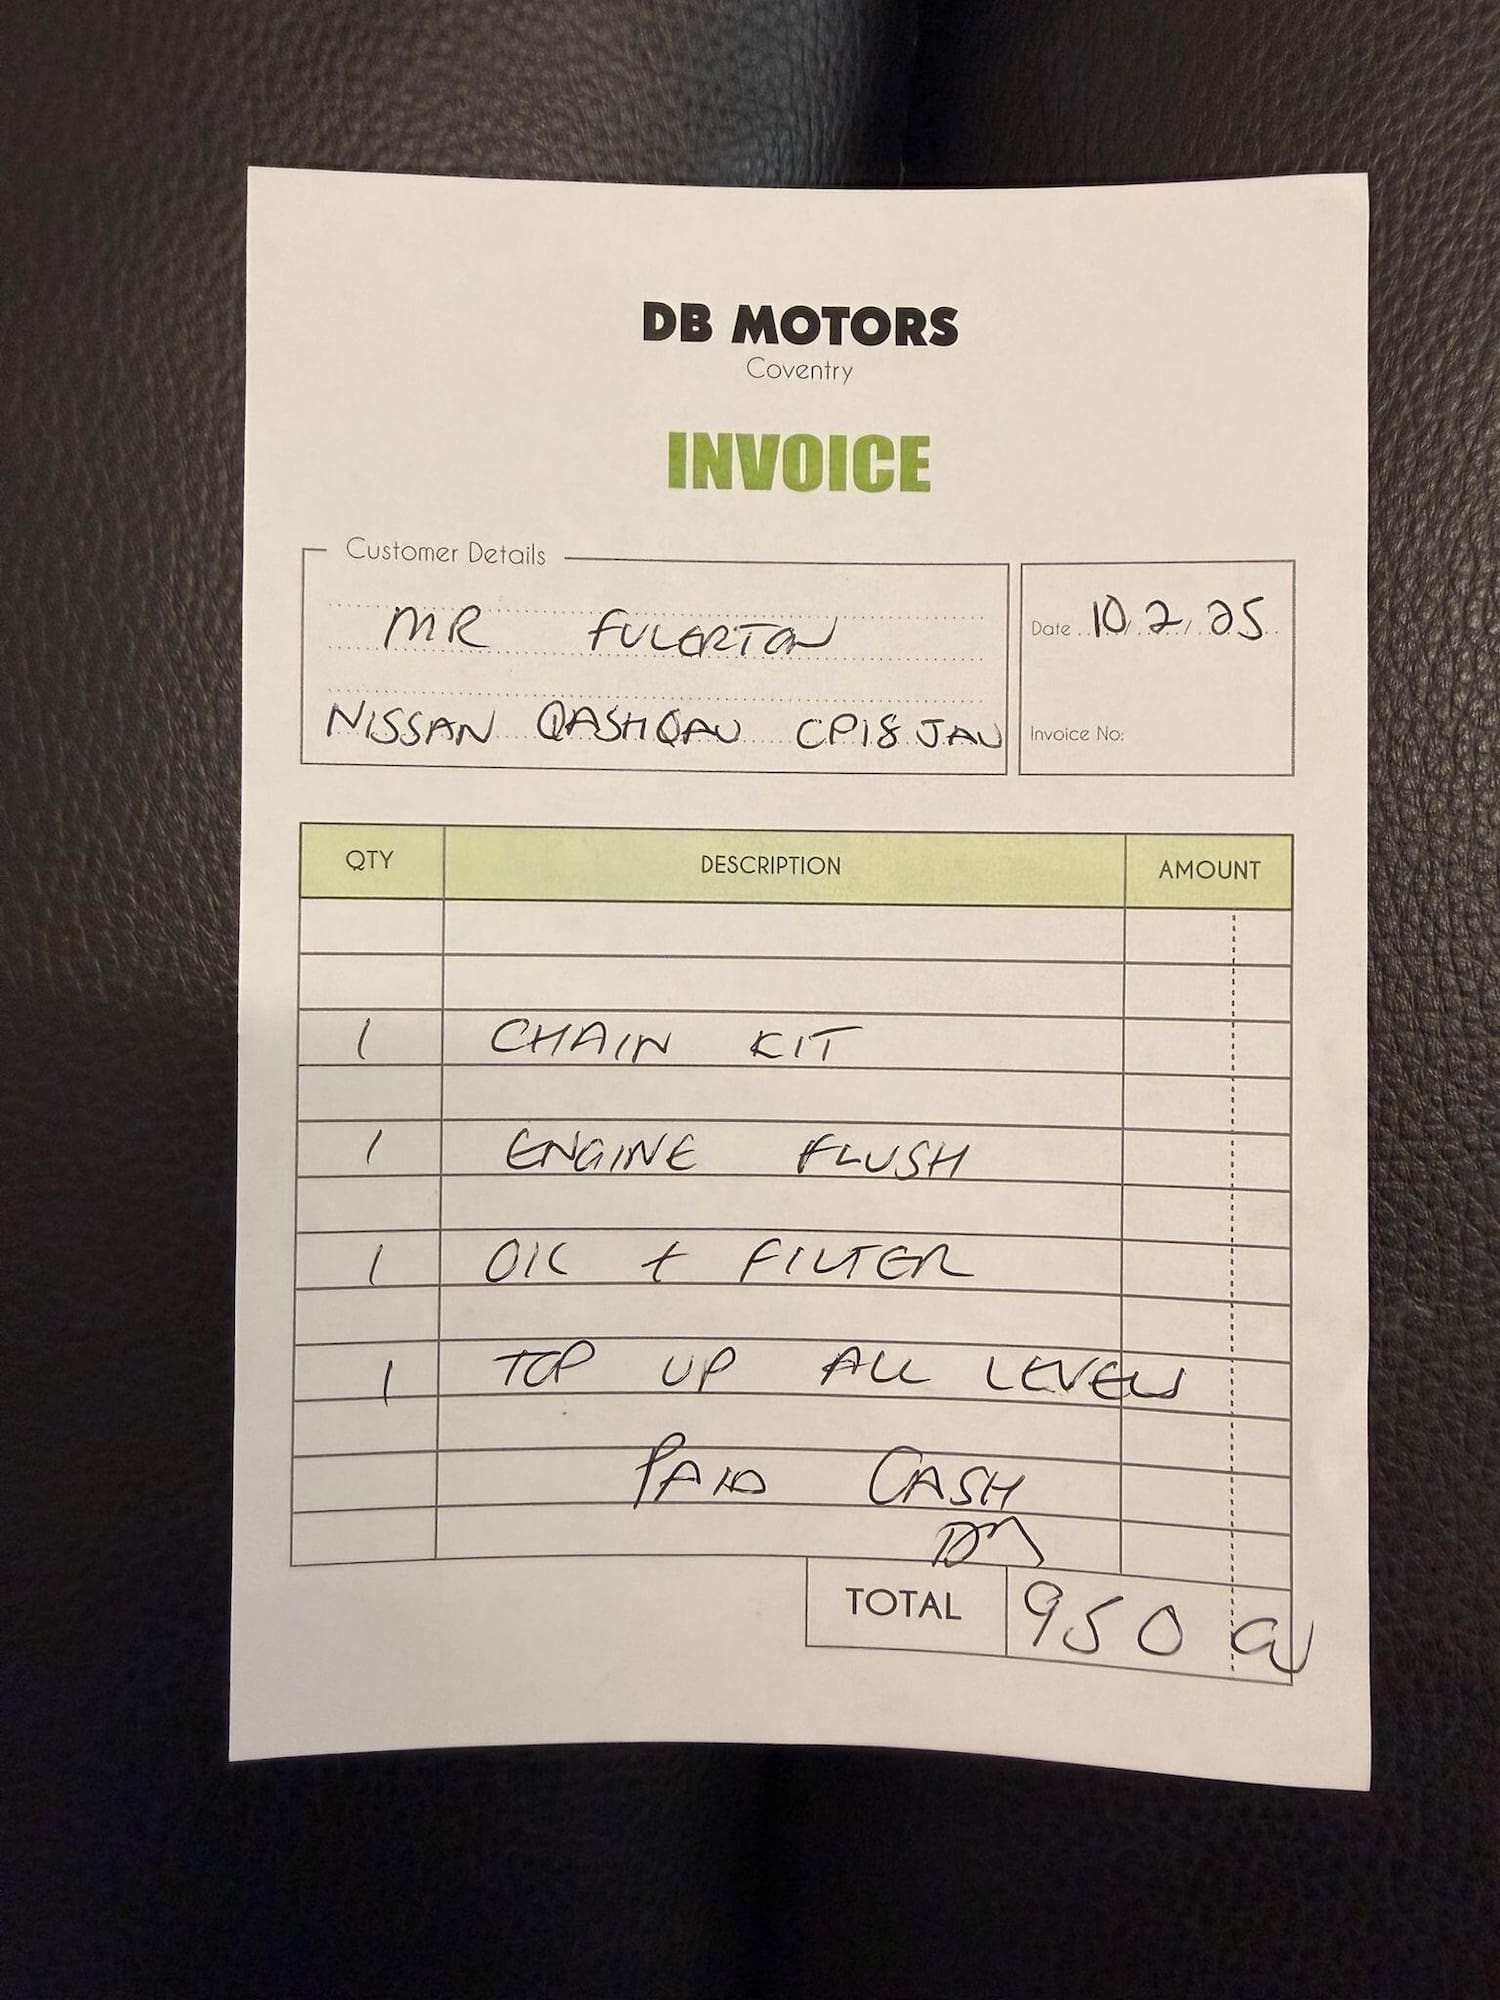 DB MOTORS
Coventry
INVOICE
Customer Details
MR FULERTON
NISSAN QASHQAU CP18 JAU
Date 10/2/25
Invoice No:
QTY DESCRIPTION AMOUNT
1 CHAIN KIT
1 ENGINE FLUSH
1 OIL + FILTER
1 TOP UP ALL LEVELS
PAID CASH
TOTAL 950